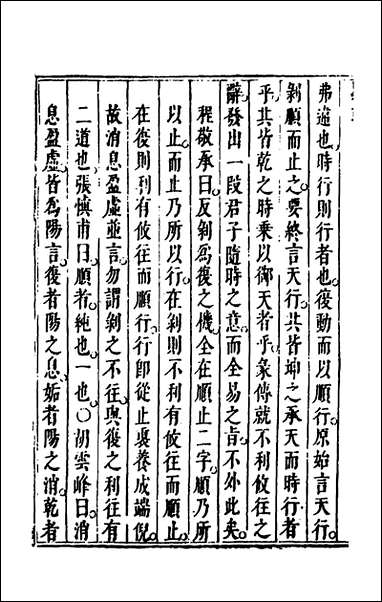 弗違也時行則行者也復動而以順行原始言天行
剝順而止之要終言天行其皆坤之承天而時行者
乎其皆乾之時乘以御天者乎彖傳就不利攸往之
辭發出一段君子隨時之意而全易之旨不外此矣
程敬承曰反剝為復之機全在順止二字順乃所
以止而止乃所以行在剝則不利有攸往而順止
在復則利有攸往而順行行即從止裏養成端倪
故消息盈虛並言勿謂剝之不往與復之利往有
二道也張慎甫曰順者純也一也○胡雲峰曰消
息盈虛皆為陽言復者陽之息姤者陽之消乾者